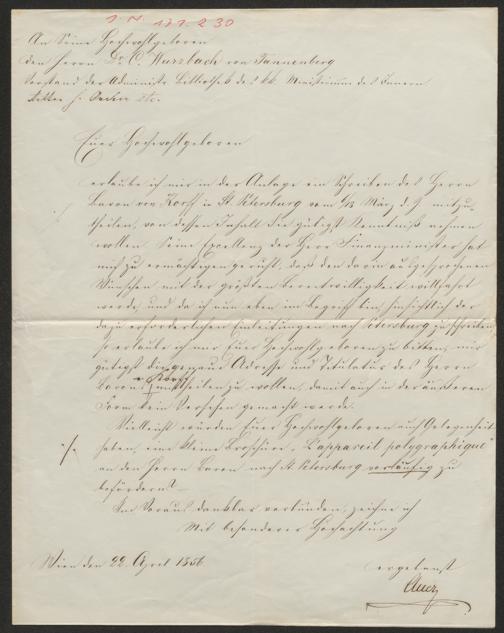 I.N. 121.230
An Seine Hochwohlgeboren
den Herrn Dr. C. Wurzbach von Tannenberg
Vorstand der Administr. Bibliothek des kk. Ministeriums des Innern
Ritter h. Orden etc.
Euer Hochwohlgeboren
erlaube ich mir in der Anlage ein Schreiben des Herrn
Baron von Korff in St. Petersburg vom 6/18 März d. J. mitzu-
theilen, von dessen Inhalt Sie gütigst Kenntniß nehmen
wollen. Seine Excellenz der Herr Finanzminister hat
mich zu ermächtigen geruht, daß den darin ausgesprochenen
Wünschen mit der größten Bereitwilligkeit willfahrt
werde, und da ich nun eben im Begriff bin, hinsichtlich der
dazu erforderlichen Einleitungen nach Petersburg zu schreiben,
so erlaube ich mir Euer Hochwohlgeboren zu bitten, mir
gütigst die genaue Adresse und Titulatur des Herrn
v. Korff
Barons mittheilen zu wollen, damit auch in der äußeren
Form kein Versehen gemacht werde.
Vielleicht würden Euer Hochwohlgeboren auch Gelegenheit
haben, eine kleine Broschüre "L'appareil polygraphique"
an den Herrn Baron nach St. Petersburg vorläufig zu
befördern.
Im Voraus dankbar verbunden, zeichne ich
Mit besonderer Hochachtung
Wien den 22. April 1856.
ergebenst
Auer